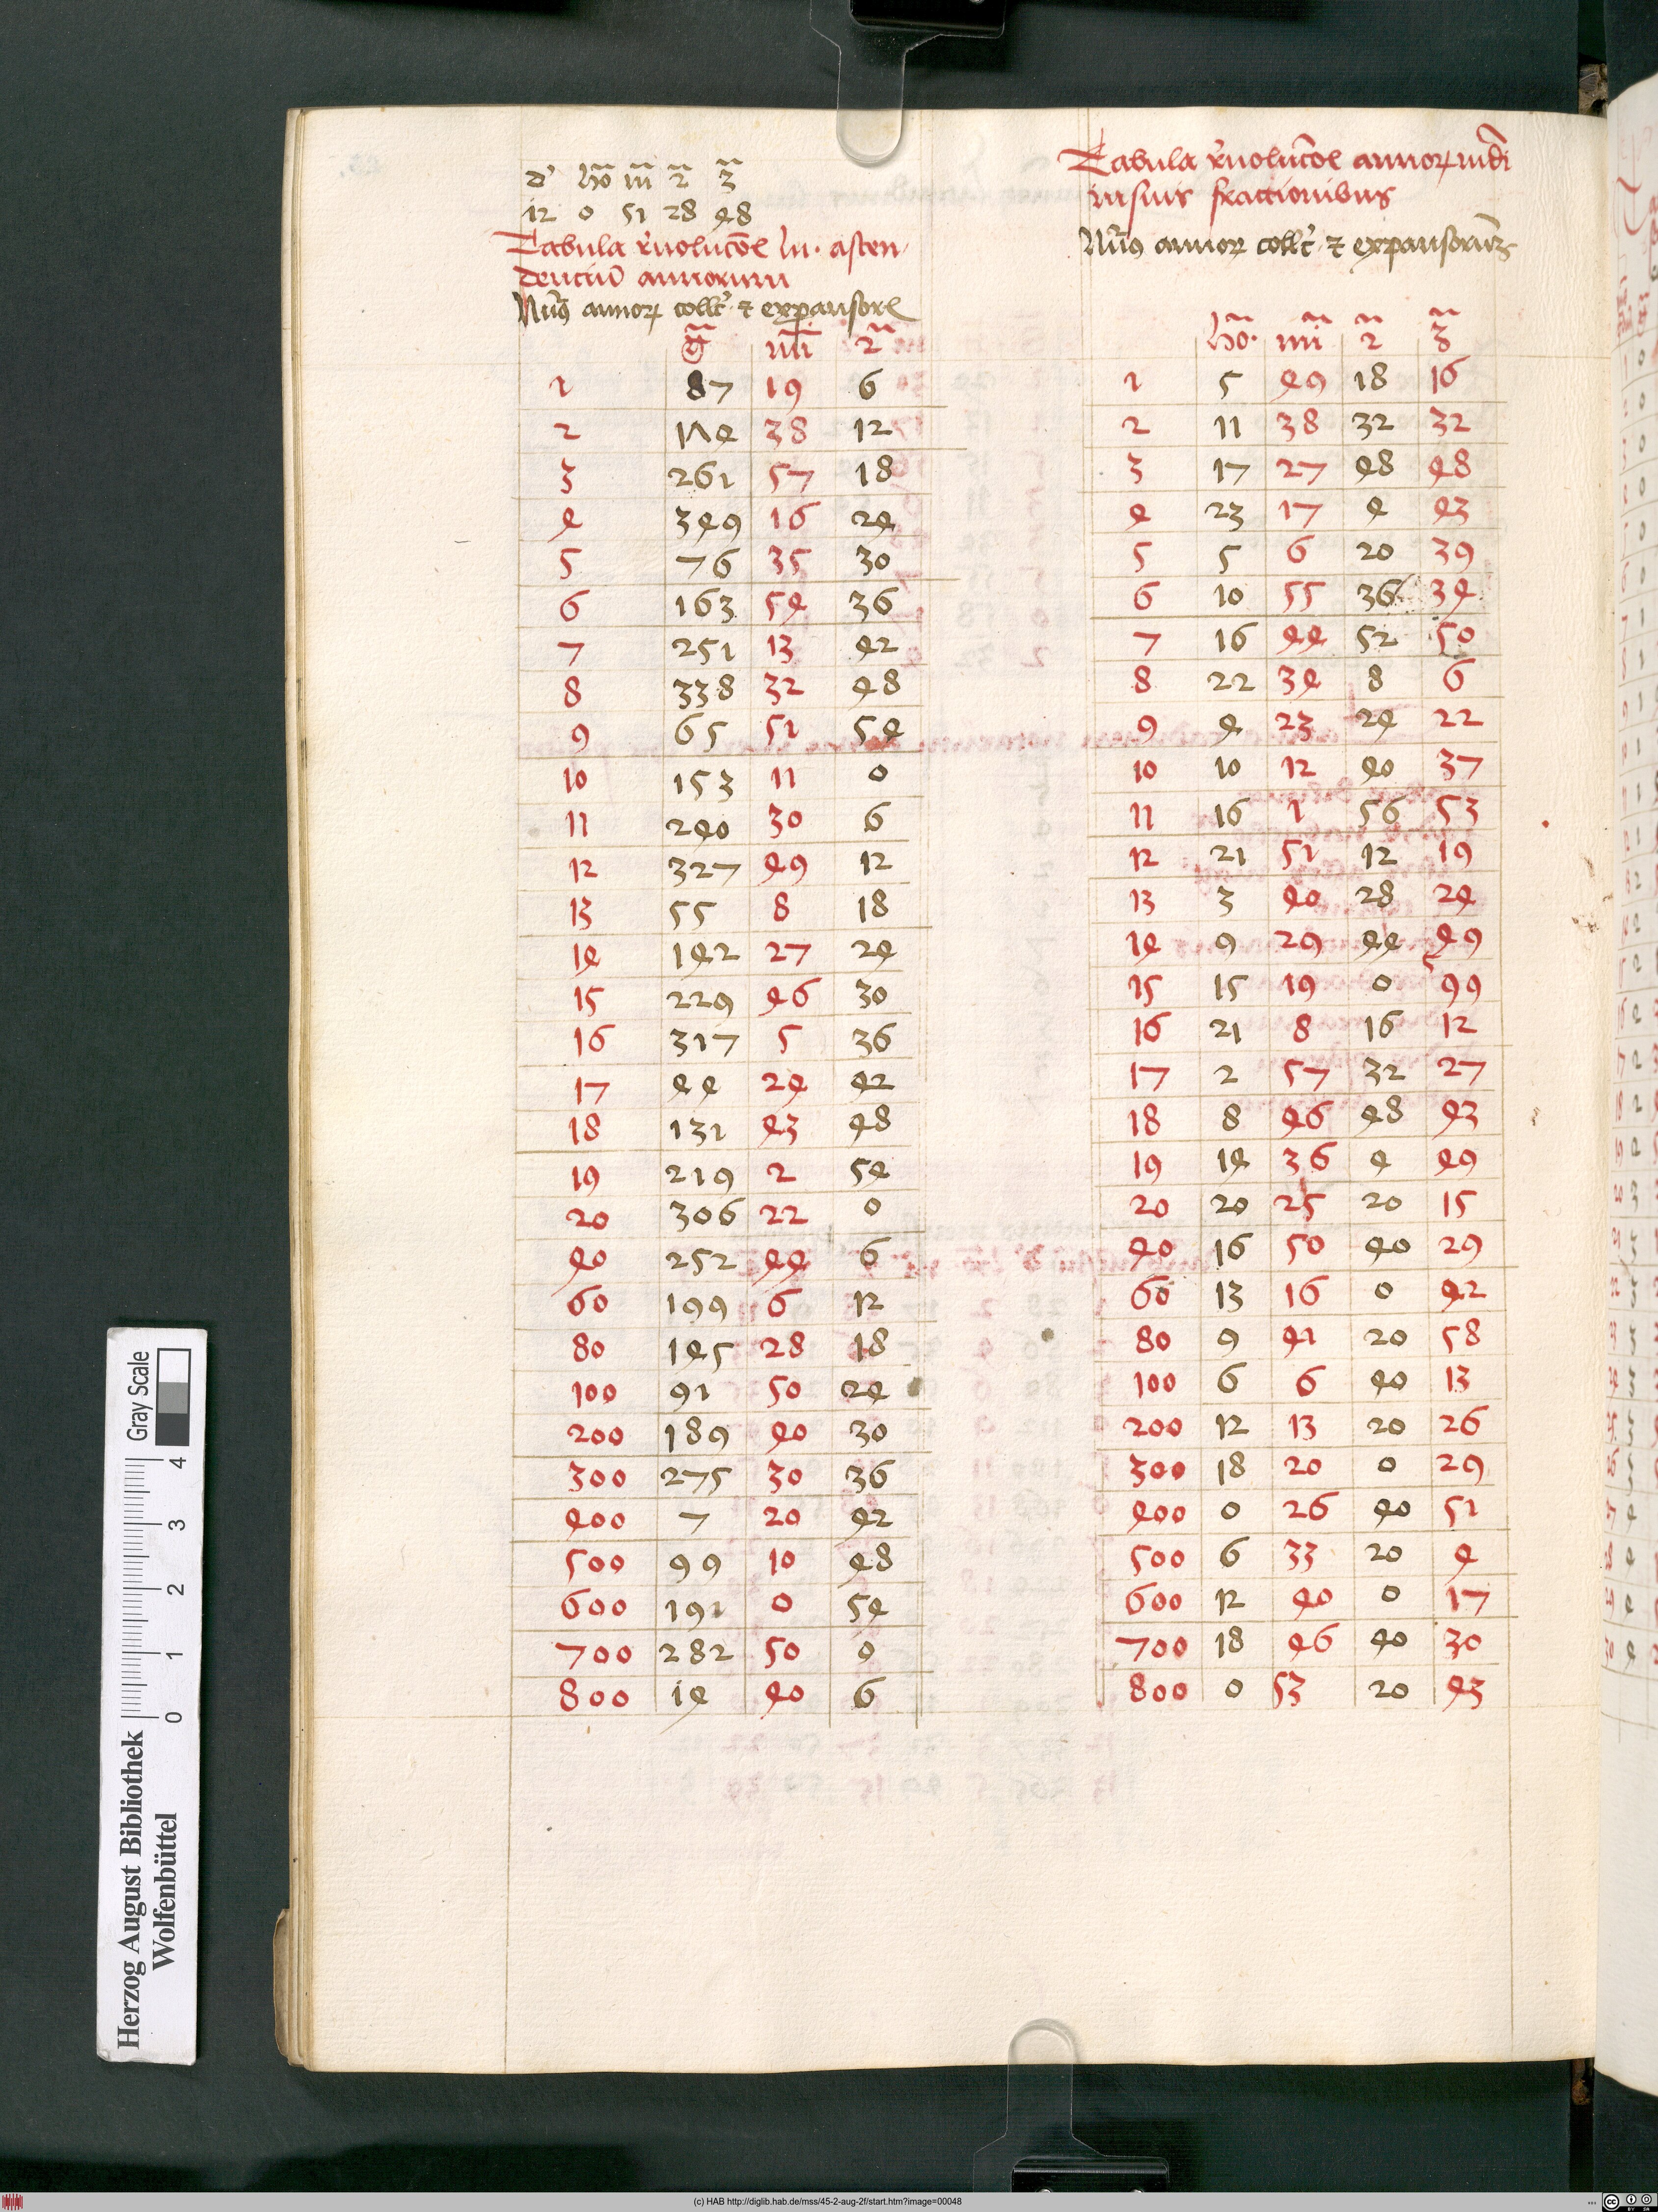 d' ho m 2 3
12 0 51 28 48
Tabula
annorum
Nus annor collc et
g m 2
1 87 19 6
2 174 38 12
3 261 57 18
4 349 16 24
5 76 35 30
6 163 54 36
7 251 13 42
8 338 32 48
9 65 51 54
10 153 11 0
11 240 30 6
12 327 49 12
13 55 8 18
14 142 27 24
15 229 46 30
16 317 5 36
17 44 24 42
18 131 43 48
19 219 2 54
20 306 22 0
40 252 44 6
60 199 6 12
80 145 28 18
100 91 50 24
200 189 40 30
300 275 30 36
400 7 20 42
500 99 10 48
600 191 0 54
700 282 50 0
800 14 40 6
Tabula annor mudi
in suis fractionibus
Nus annor collc et expansorum
ho. m 2 3
1 5 49 18 16
2 11 38 32 32
3 17 27 48 48
4 23 17 4 43
5 5 6 20 39
6 10 55 36 34
7 16 44 52 50
8 22 34 8 6
9 4 23 24 22
10 10 12 40 37
11 16 1 56 53
12 21 51 12 19
13 3 40 28 24
14 9 29 44 49
15 15 19 0 99
16 21 8 16 12
17 2 57 32 27
18 8 46 48 43
19 14 36 4 49
20 20 25 20 15
40 16 50 40 29
60 13 16 0 42
80 9 41 20 58
100 6 6 40 13
200 12 13 20 26
300 18 20 0 29
400 0 26 40 51
500 6 33 20 4
600 12 40 0 17
700 18 46 40 30
800 0 53 20 43
Herzog August Bibliothek
Wolfenbüttel
0 1 2 3 4
Gray Scale
(c) HAB http://diglib.hab.de/mss/45-2-aug-2f/start.htm?image=00048